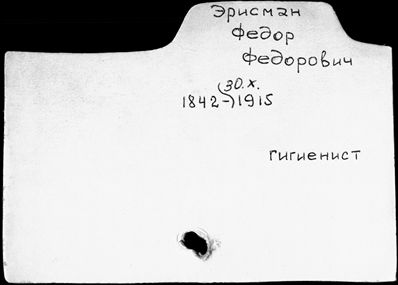 Эрисман
Федор
Федорович
(30.х.
1842-)1915
гигиенист